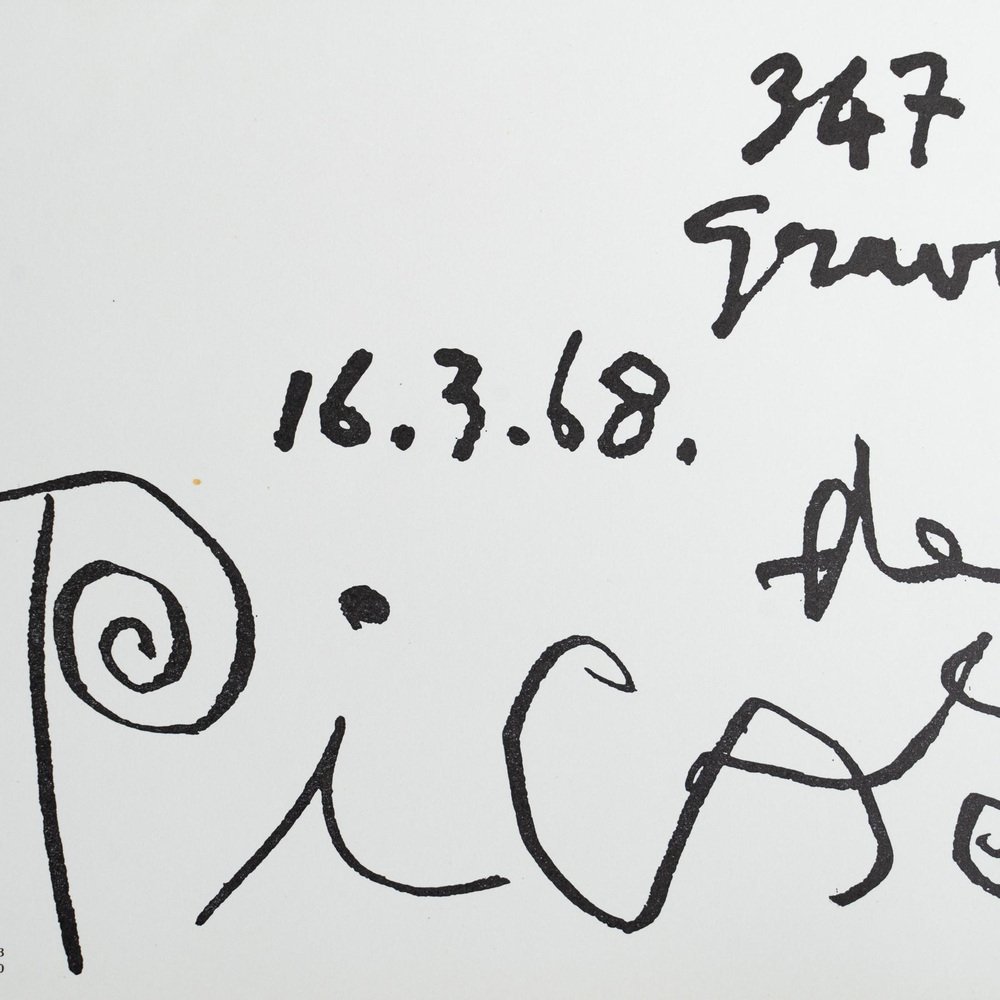 347
grav
16.3.68.
de
Picasso